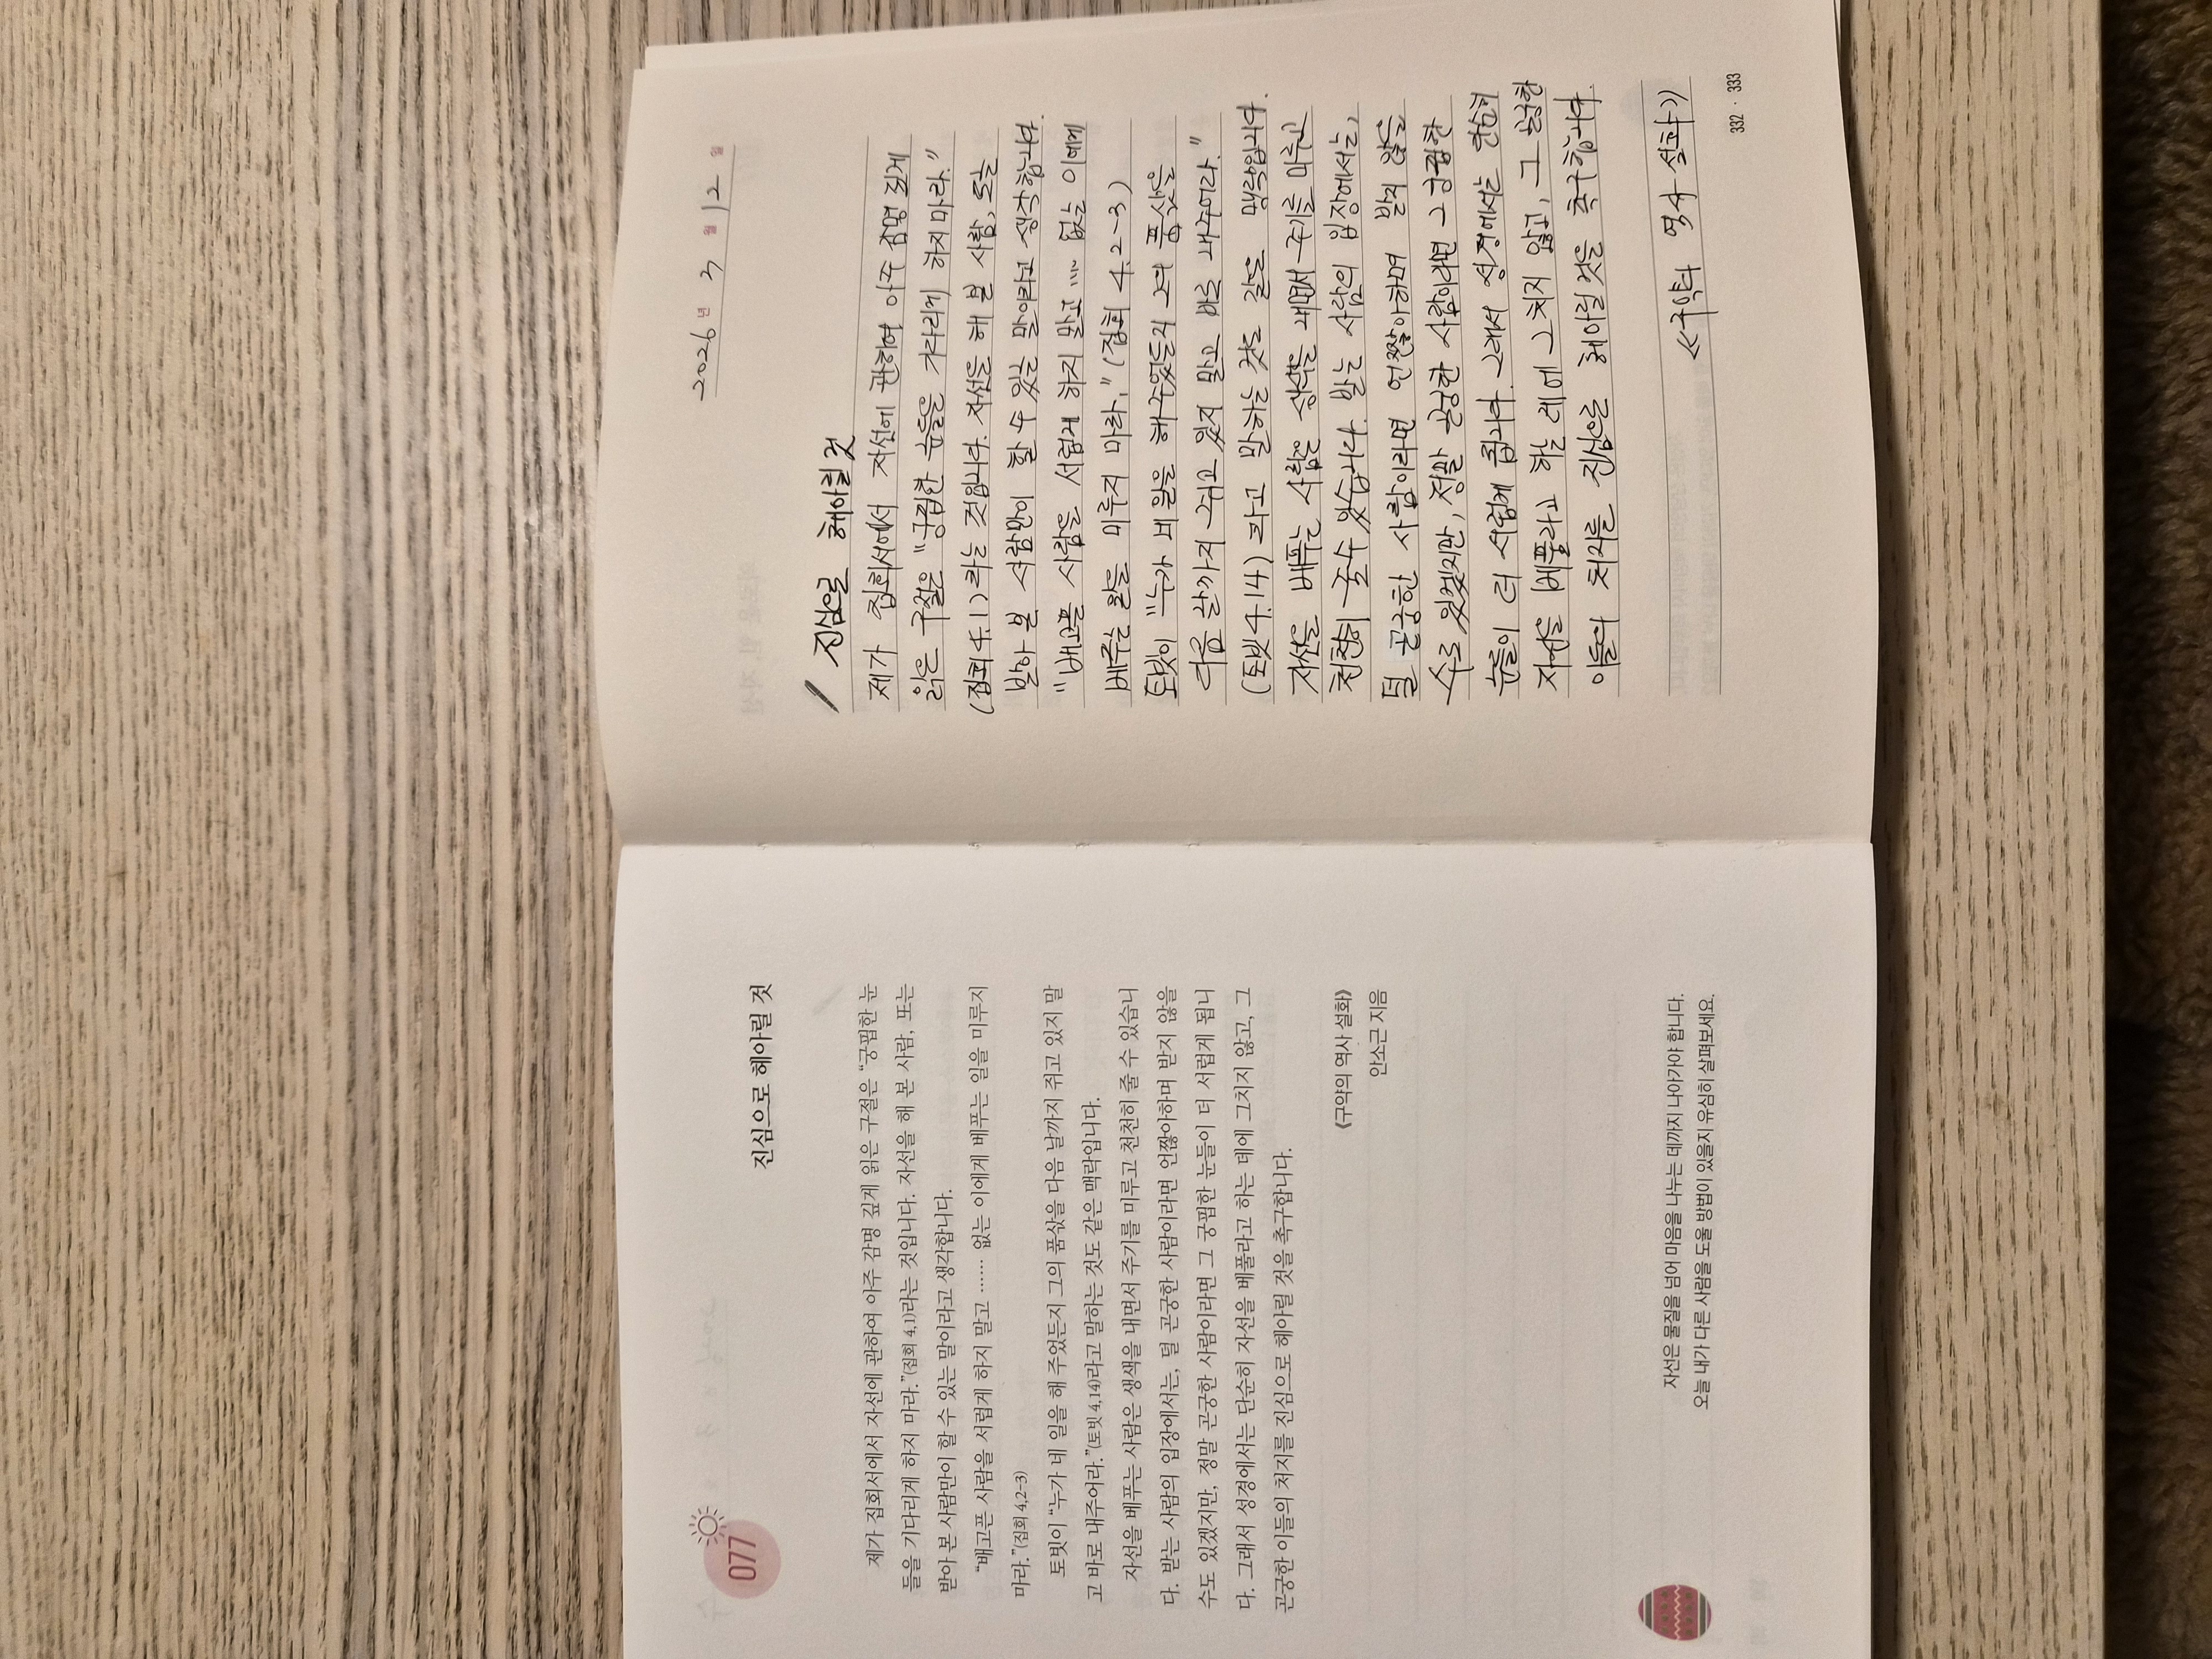 077
진심으로 헤아릴 것
제가 집회서에서 자선에 관하여 아주 감명 깊게 읽은 구절은 “궁핍한 눈
들을 기다리게 하지 마라.”(집회 4,1)라는 것입니다. 자선을 해 본 사람, 또는
받아 본 사람만이 할 수 있는 말이라고 생각합니다.
“배고픈 사람을 서럽게 하지 말고 …… 없는 이에게 베푸는 일을 미루지
마라.”(집회 4,2-3)
토빗이 “누가 네 일을 해 주었든지 그의 품삯을 다음 날까지 쥐고 있지 말
고 바로 내주어라.”(토빗 4,14)라고 말하는 것도 같은 맥락입니다.
자선을 베푸는 사람은 생색을 내면서 주기를 미루고 천천히 줄 수 있습니
다. 받는 사람의 입장에서는, 덜 곤궁한 사람이라면 언짢아하며 받지 않을
수도 있겠지만, 정말 곤궁한 사람이라면 그 궁핍한 눈들이 더 서럽게 됩니
다. 그래서 성경에서는 단순히 자선을 베풀라고 하는 데에 그치지 않고, 그
곤궁한 이들의 처지를 진심으로 헤아릴 것을 촉구합니다.
《구약의 역사 설화》
안소근 지음
자선은 물질을 넘어 마음을 나누는 데까지 나아가야 합니다.
오늘 내가 다른 사람을 도울 방법이 있을지 유심히 살펴보세요.
2026 년 3 월 12 일
진심으로 헤아릴 것
제가 집회서에서 자선에 관하여 아주 감명 깊게
읽은 구절은 “궁핍한 눈들을 기다리게 하지 마라.”
(집회 4.1)라는 것입니다. 자선을 해 본 사람, 또는
받아 본 사람만이 할 수 있는 말이라고 생각합니다.
“배고픈 사람을 서럽게 하지 말고 …… 없는 이에게
베푸는 일을 미루지 마라.” (집회 4.2-3)
토빗이 “누가 네 일을 해 주었든지 그의 품삯을
다음 날까지 쥐고 있지 말고 바로 내주어라.”
(토빗 4.14) 라고 말하는 것도 같은 맥락입니다.
자선을 베푸는 사람은 생색을 내면서 주기를 미루고
천천히 줄 수 있습니다. 받는 사람의 입장에서는,
덜 곤궁한 사람이라면 언짢아하며 받지 않을
수도 있겠지만, 정말 곤궁한 사람이라면 그 궁핍한
눈들이 더 서럽게 됩니다. 그래서 성경에서는 단순히
자선을 베풀라고 하는 데에 그치지 않고, 그 곤궁한
이들의 처지를 진심으로 헤아릴 것을 촉구합니다.
《구약의 역사 설화》
332 · 333